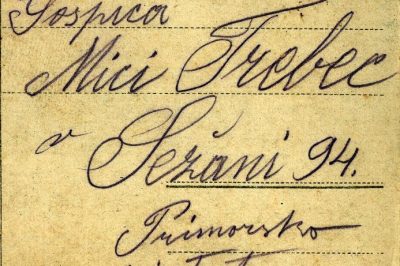 Gospica
Mici Trebec
v
Sežani 94.
Primorsko